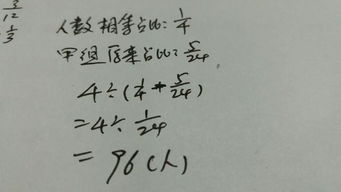 3/12
1/3
人数相等占比：1/4
甲组原来占比：5/24
4÷(1/4-5/24)
=4÷1/24
=96(人)